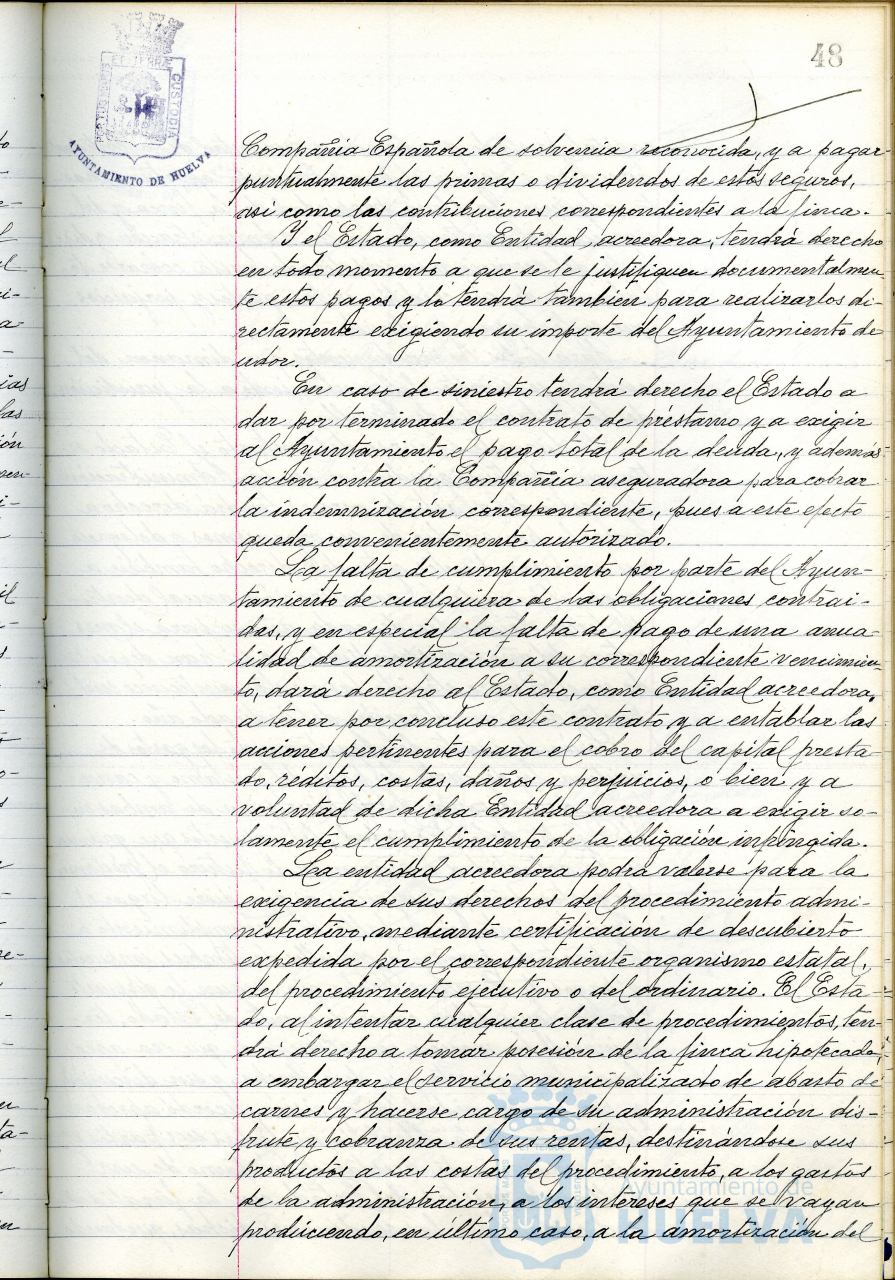 48
PORTUS MARIS ET TERRÆ CUSTODIA
AYUNTAMIENTO DE HUELVA
Compañia Española de solvencia reconocida, y a pagar
puntualmente las primas o dividendos de estos seguros,
asi como las contribuciones correspondientes a la finca.
Y el Estado, como Entidad acreedora, tendrá derecho
en todo momento a que se le justifiquen documentalmen-
te estos pagos y lo tendrá tambien para realizarlos di-
rectamente exigiendo su importe del Ayuntamiento de
udor.
En caso de siniestro tendrá derecho el Estado a
dar por terminado el contrato de préstamo y a exigir
al Ayuntamiento el pago total de la deuda, y además
acción contra la Compañia aseguradora para cobrar
la indemnización correspondiente, pues a este efecto
queda convenientemente autorizado.
La falta de cumplimiento por parte del Ayun-
tamiento de cualquiera de las obligaciones contrai-
das, y en especial la falta de pago de una anua-
lidad de amortización a su correspondiente vencimien-
to, dará derecho al Estado, como Entidad acreedora,
a tener por concluso este contrato y a entablar las
acciones pertinentes para el cobro del capital presta-
do, reditos, costas, daños y perjuicios, o bien y a
voluntad de dicha Entidad acreedora a exigir so-
lamente el cumplimiento de la obligación infringida.
La entidad acreedora podrá valerse para la
exigencia de sus derechos del procedimiento admi-
nistrativo, mediante certificación de descubierto
expedida por el correspondiente organismo estatal,
del procedimiento ejecutivo o del ordinario. El Esta-
do, al intentar cualquier clase de procedimientos, ten-
drá derecho a tomar posesión de la finca hipotecada,
a embargar el servicio municipalizado de abasto de
carnes y hacerse cargo de su administración dis-
frute y cobranza de sus rentas, destinándose sus
productos a las costas del procedimiento, a los gastos
de la administración, a los intereses que se vayan
produciendo, en último caso, a la amortización del
Ayuntamiento de
HUELVA